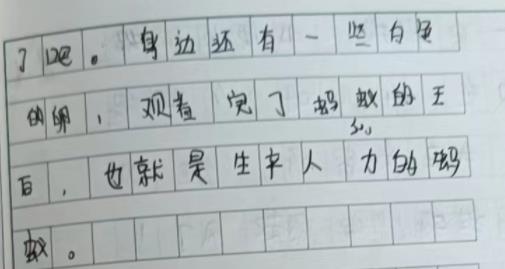 了吧。身边还有一些白色
的卵，观看完了蚂蚁的王
后，也就是生辛人力的蚂
蚁。